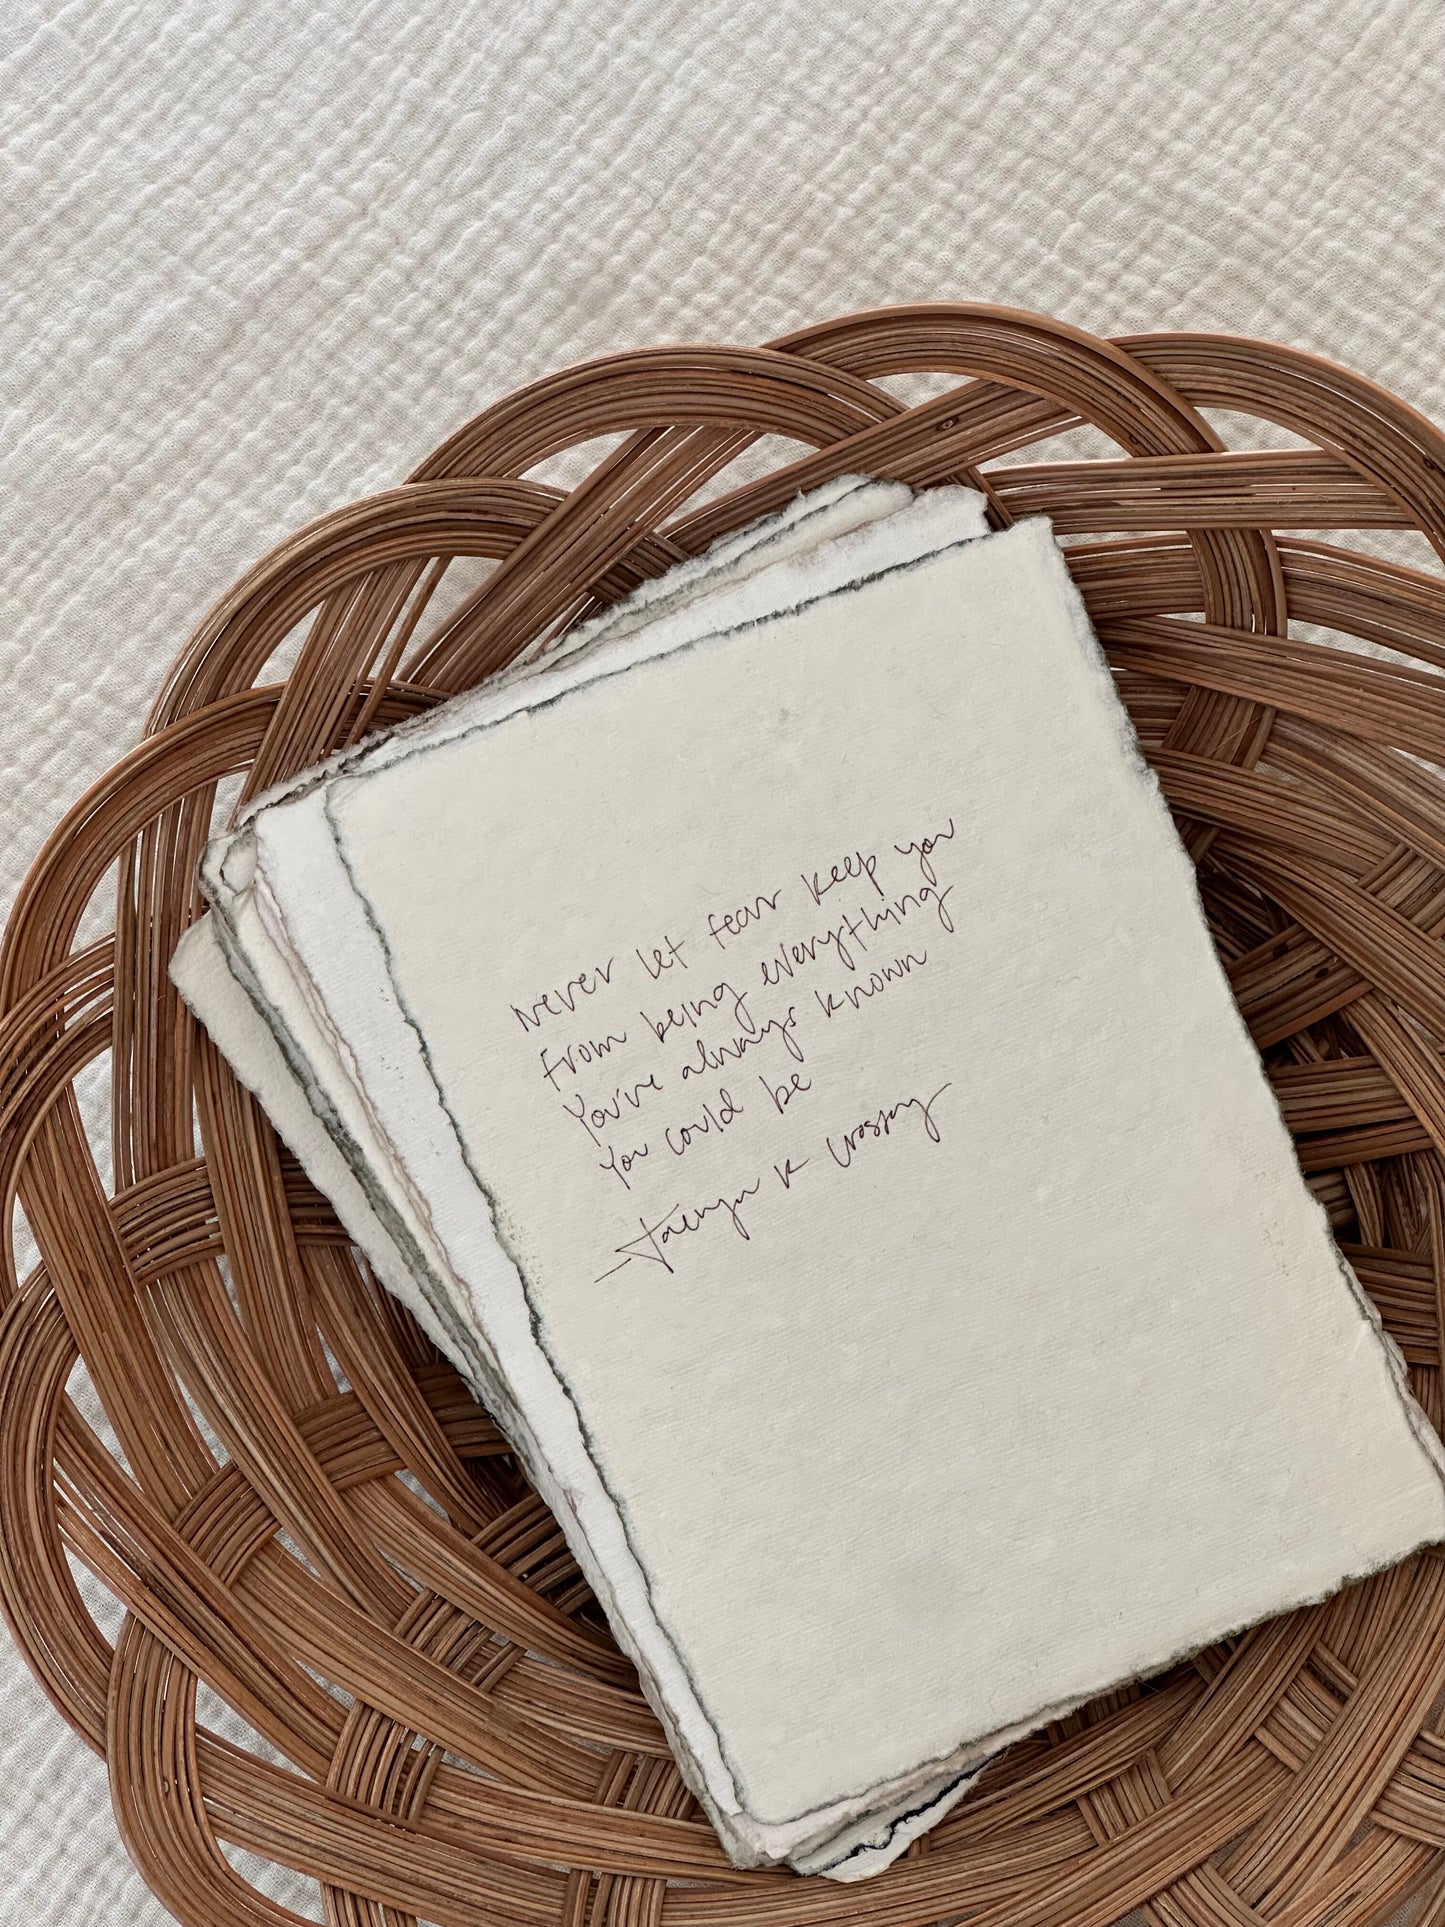 Never let fear keep you
from being everything
You've always known
you could be
K Crossley